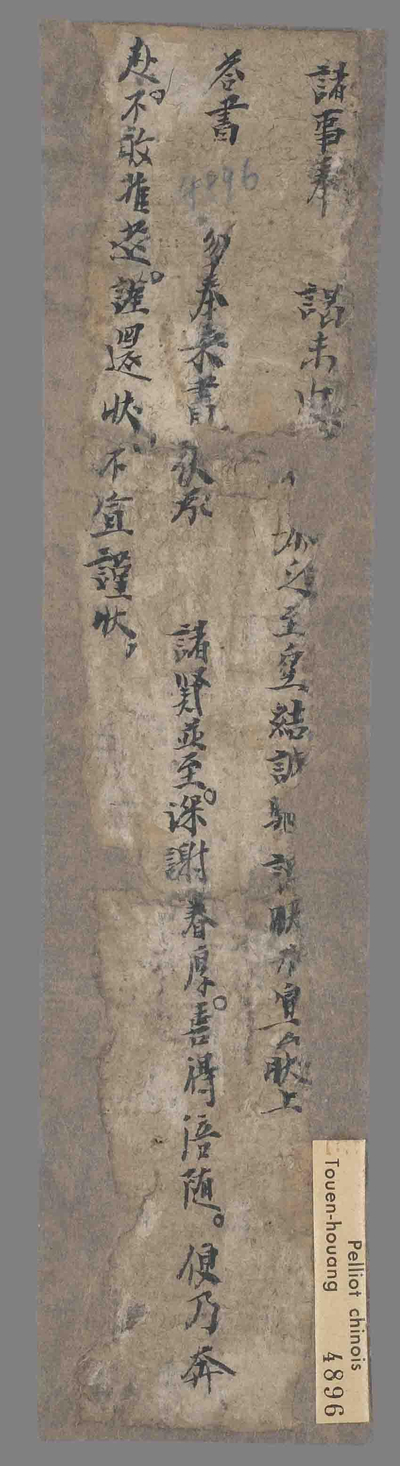 諸事奉 諮未 至空結誠馳 狀不宣謹狀上
荅書 多奉來書 伏承 諸賢並至。深謝眷厚。善得陪隨。便乃奔
赴。不敢推延。謹還狀。不宣謹狀。
4896
Pelliot chinois
Touen-houang 4896